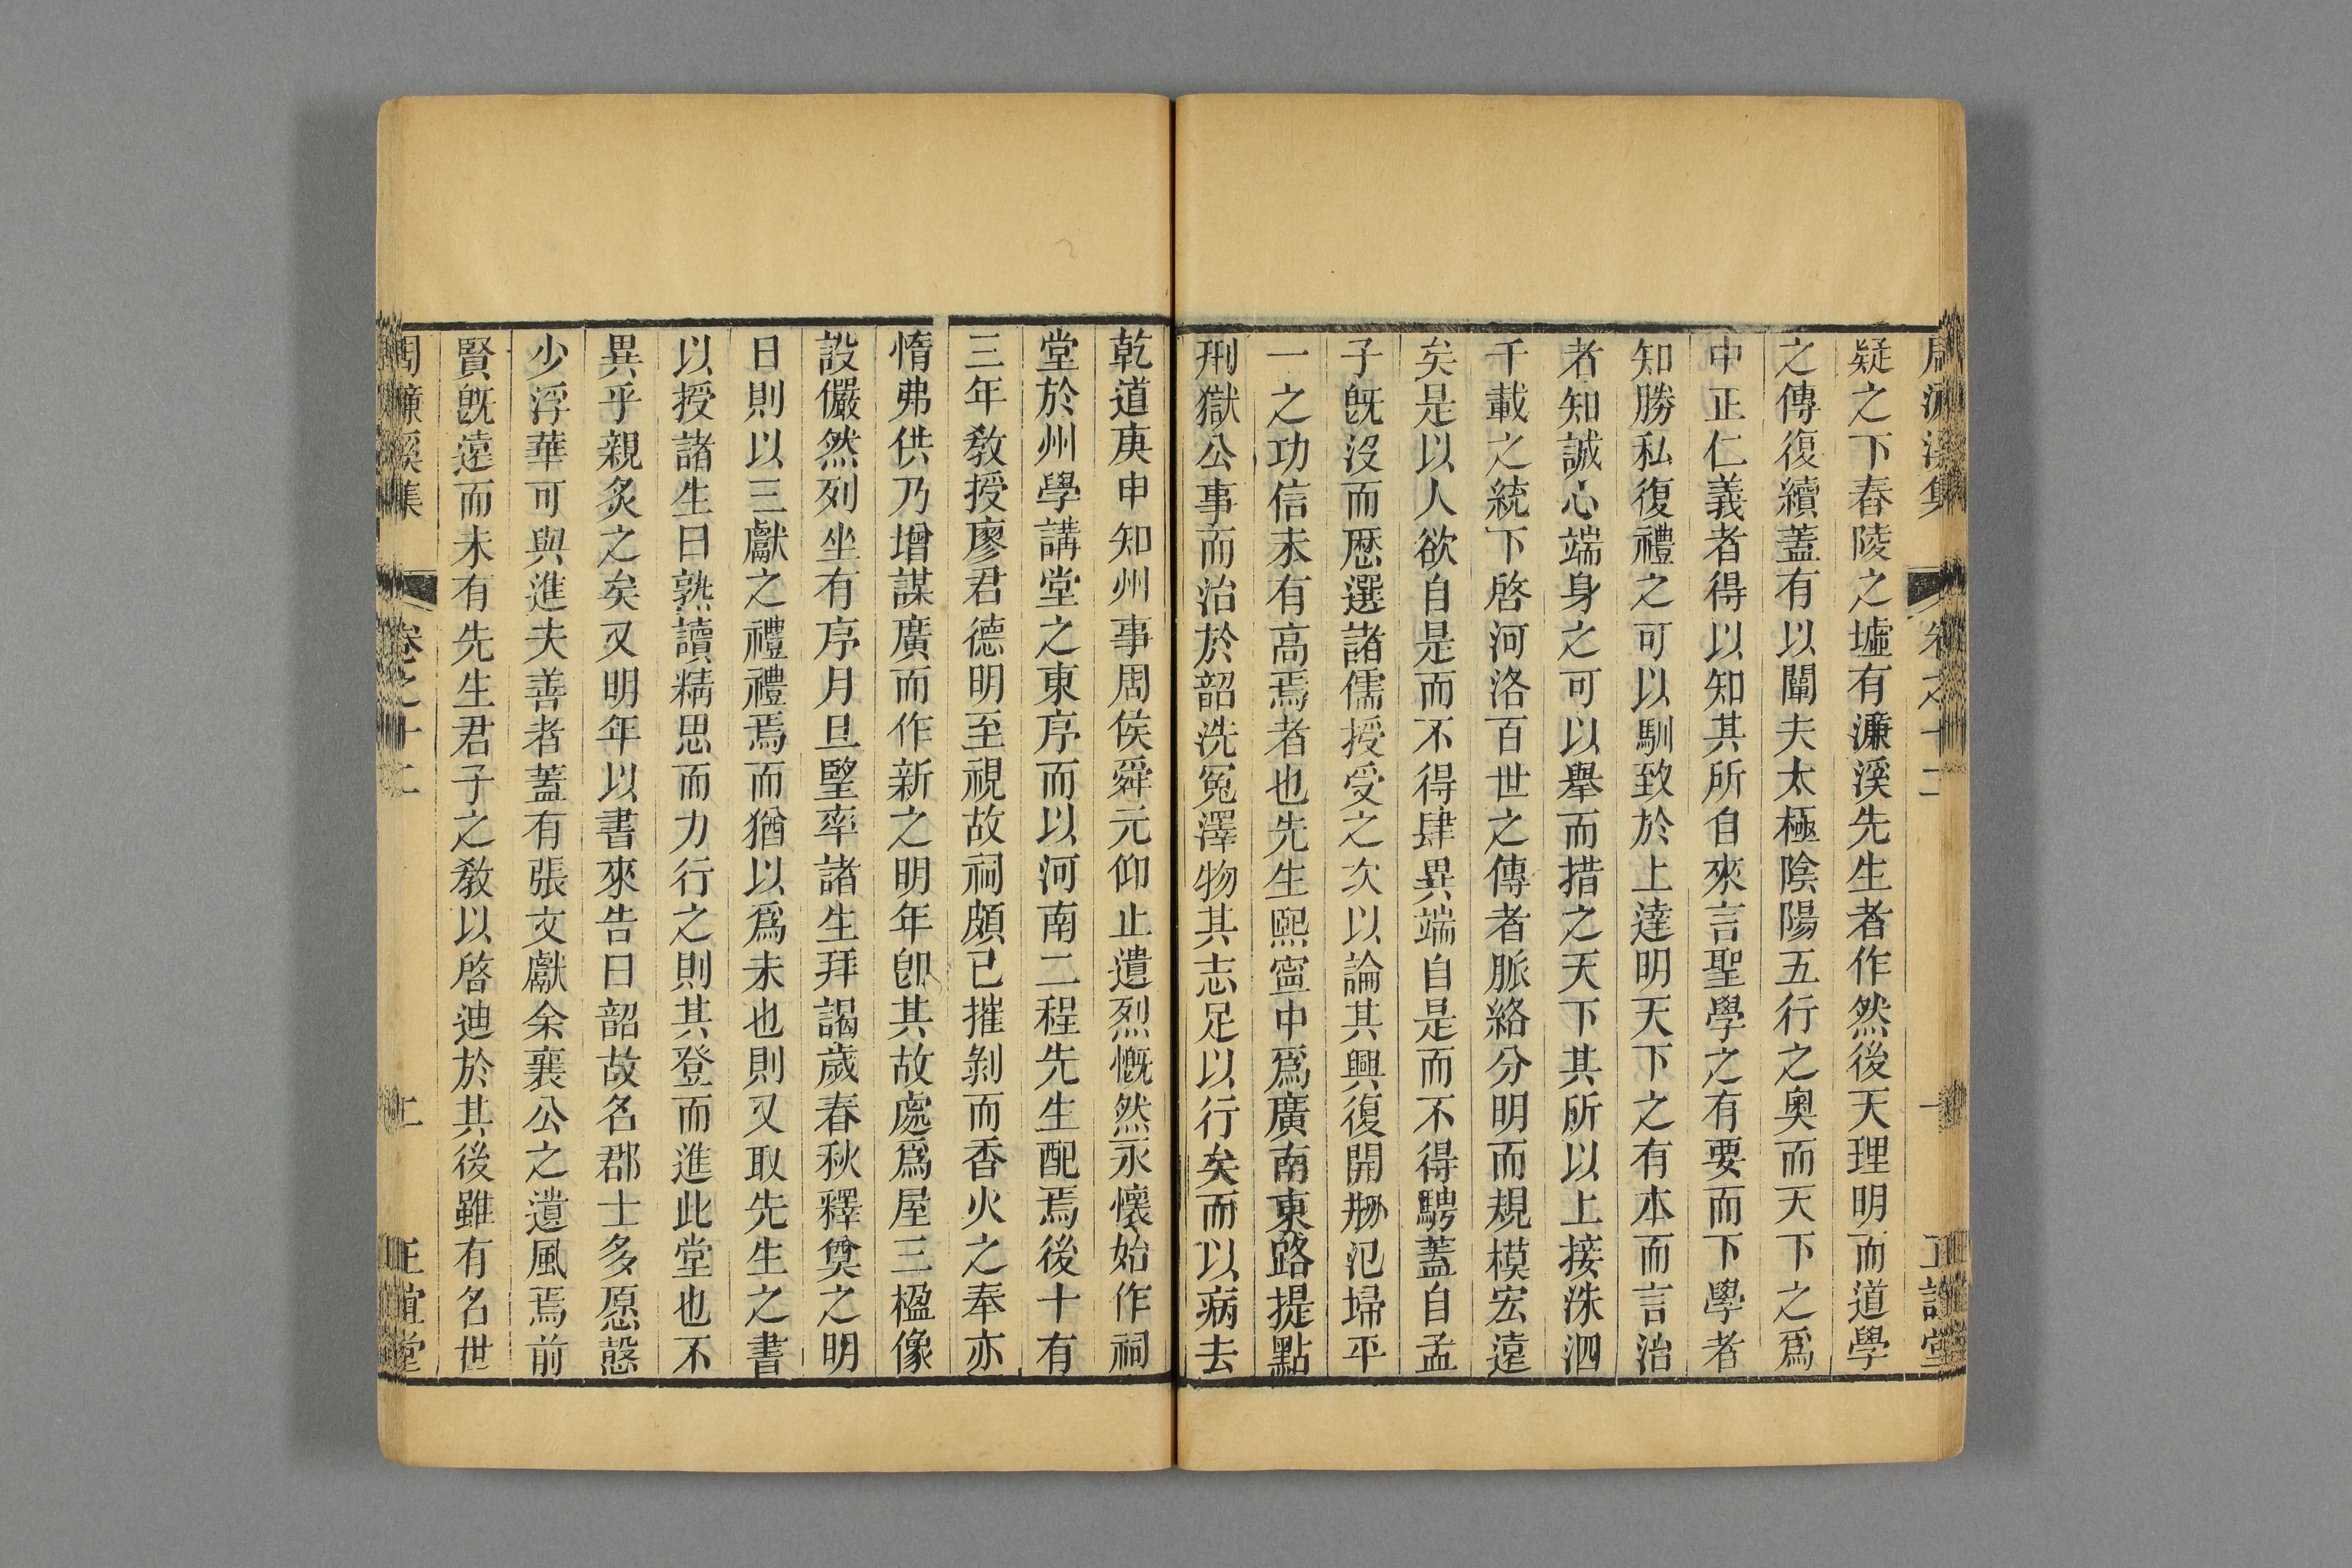 周濂溪集 卷之十二 一 正誼堂
疑之下舂陵之墟有濂溪先生者作然後天理明而道學
之傳復續蓋有以闡夫太極陰陽五行之奥而天下之爲
中正仁義者得以知其所自來言聖學之有要而下學者
知勝私復禮之可以馴致於上達明天下之有本而言治
者知誠心端身之可以舉而措之天下其所以上接洙泗
千載之統下啓河洛百世之傳者脈絡分明而規模宏遠
矣是以人欲自是而不得肆異端自是而不得騁蓋自孟
子旣沒而歷選諸儒授受之次以論其興復開剏氾埽平
一之功信未有高焉者也先生熙寧中爲廣南東路提點
刑獄公事而治於韶洗冤澤物其志足以行矣而以病去
乾道庚申知州事周侯舜元仰止遺烈慨然永懷始作祠
堂於州學講堂之東序而以河南二程先生配焉後十有
三年敎授廖君德明至視故祠頗已摧剝而香火之奉亦
惰弗供乃增謀廣而作新之明年卽其故處爲屋三楹像
設儼然列坐有序月旦朢率諸生拜謁歲春秋釋奠之明
日則以三獻之禮禮焉而猶以爲未也則又取先生之書
以授諸生曰熟讀精思而力行之則其登而進此堂也不
異乎親炙之矣又明年以書來告曰韶故名郡士多愿慤
少浮華可與進夫善者蓋有張文獻余襄公之遺風焉前
賢旣遠而未有先生君子之敎以啓迪於其後雖有名世
周濂溪集 卷之十二 二 正誼堂